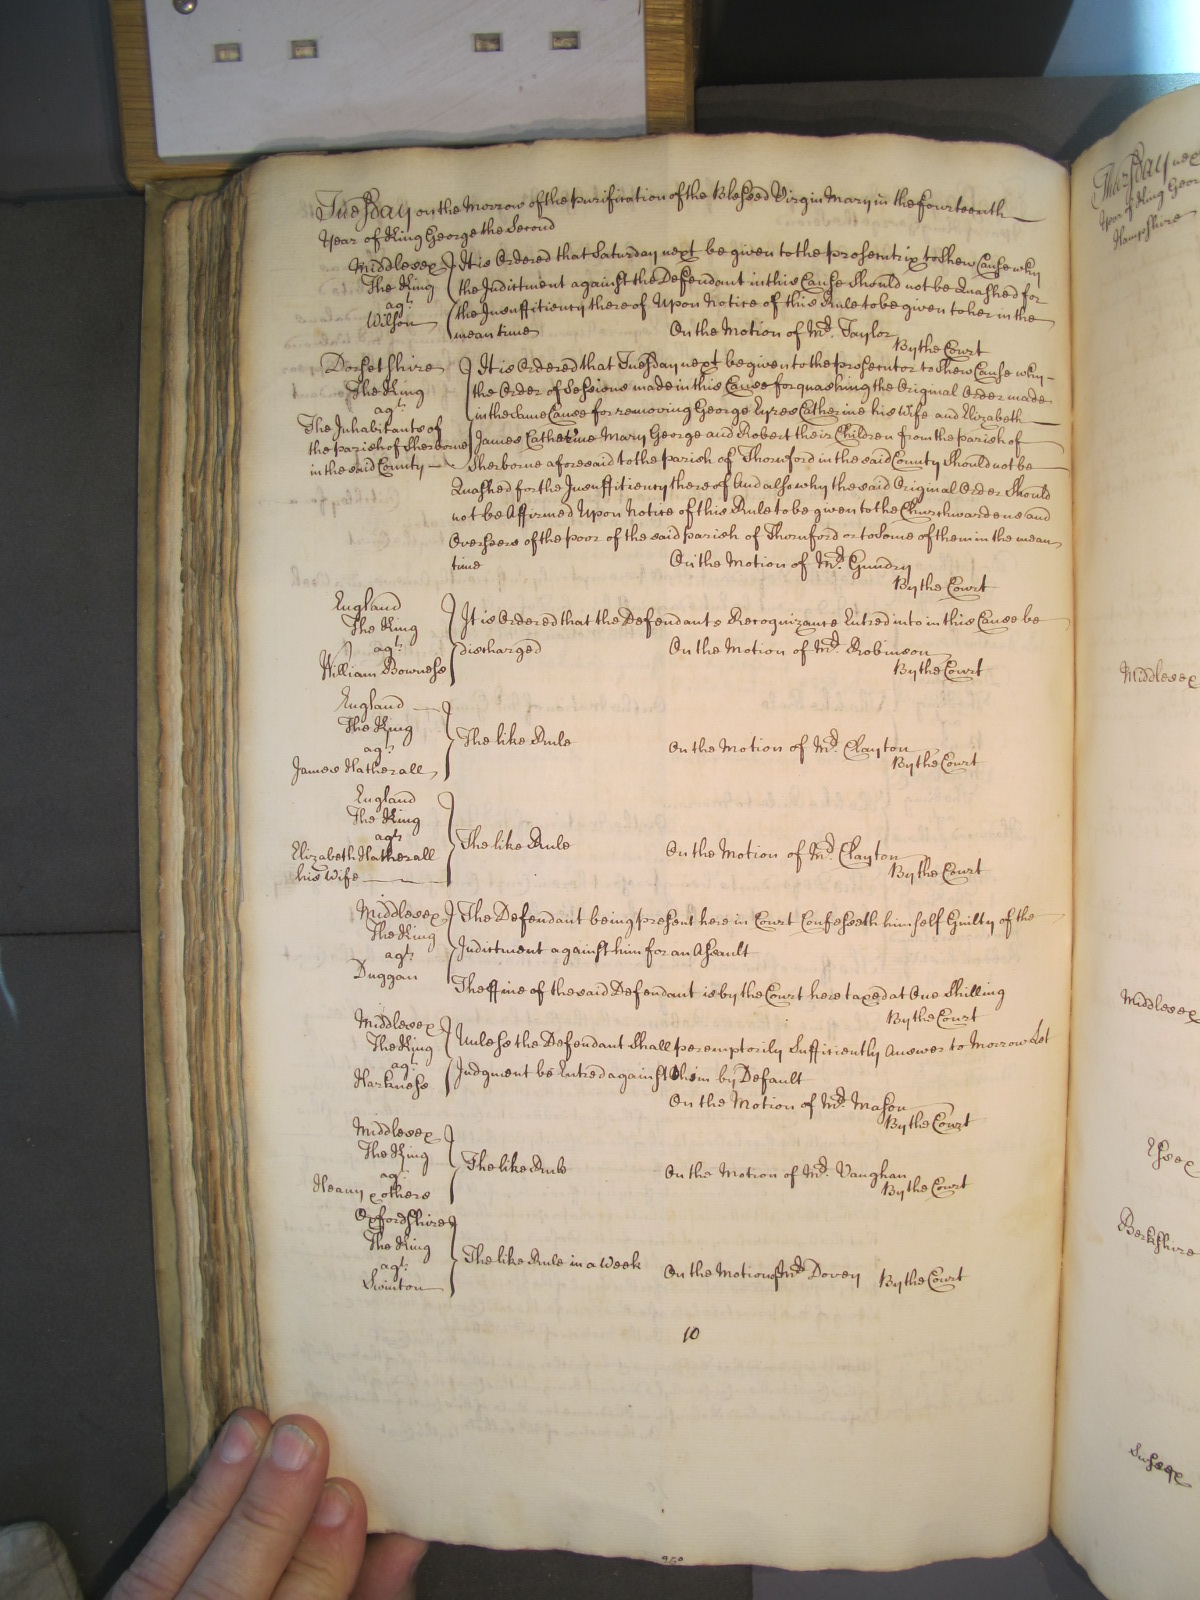 Tuesday on the Morrow of the purification of the Blessed Virgin Mary in the fourteenth
Year of King George the Second
Middlesex It is Ordered that Saturday next be given to the prosecutrix to Shew Cause why
The King the Indictment against the Defendant in this Cause Should not be Quashed for
agt. the Insufficiency thereof Upon Notice of this Rule to be given to her in the
Wilson mean time On the Motion of Mr. Taylor
By the Court
Dorsetshire It is Ordered that Tuesday next be given to the prosecutor to Shew Cause why
The King the Order of Sessions made in this Cause for quashing the Original Order made
agt. in the same Cause for removing George Eyres Catherine his Wife and Elizabeth
The Inhabitants of James Catherine Mary George and Robert their Children from the parish of
the parish of Sherborne
in the said County Sherborne aforesaid to the parish of Thornford in the said County Should not be
Quashed for the Insufficiency thereof And also why the said Original Order Should
not be Affirmed Upon Notice of this Rule to be given to the Churchwardens and
Overseers of the poor of the said parish of Thornford or to Some of them in the mean
time On the Motion of Mr. Gundry
By the Court
England
The King It is Ordered that the Defendants Recognizance Entred into in this Cause be
agt. discharged On the Motion of Mr. Robinson
William Bowness By the Court
England
The King The like Rule On the Motion of Mr. Clayton
agt. By the Court
James Hatherall
England
The King
agt. The like Rule On the Motion of Mr. Clayton
Elizabeth Hatherall By the Court
his Wife
Middlesex The Defendant being present here in Court Confesseth himself Guilty of the
The King
agt. Indictment against him for an Assault
Duggan The ffine of the said Defendant is by the Court here taxed at One Shilling
By the Court
Middlesex
The King Unless the Defendant Shall peremptorily Sufficiently Answer to Morrow Let
agt.
Harkness Judgment be Entred against him by Default
On the Motion of Mr. Mason
By the Court
Middlesex
The King The like Rule On the Motion of Mr. Vaughan
agt. By the Court
Heany & others
Oxfordshire
The King The like Rule in a Week On the Motion of Mr. Dovey By the Court
agt.
Swinton
10
Thursday
Year of King
Hampshire
Middlesex
Middlesex
Essex
Berkshire
Sussex